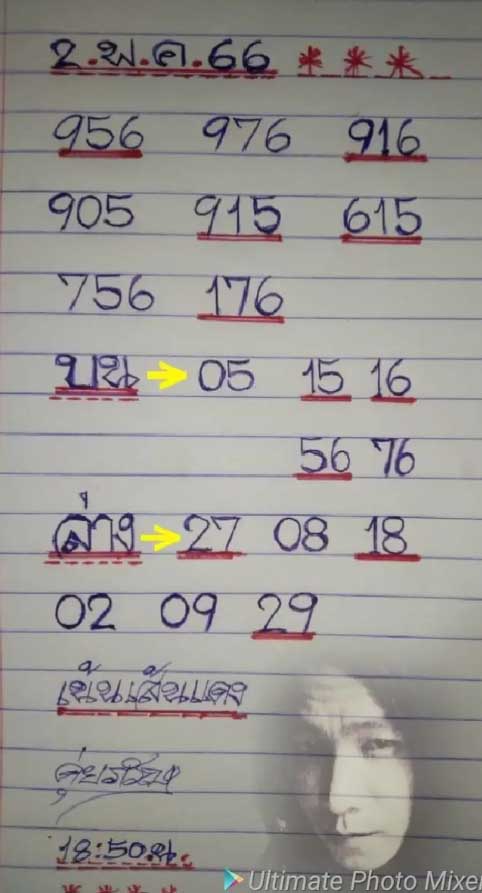 2.พ.ค.66 ***
956 976 916
905 915 615
756 176
บน → 05 15 16
56 76
ล่าง → 27 08 18
02 09 29
เน้นเส้นแดง
18:50น.
****
Ultimate Photo Mixer